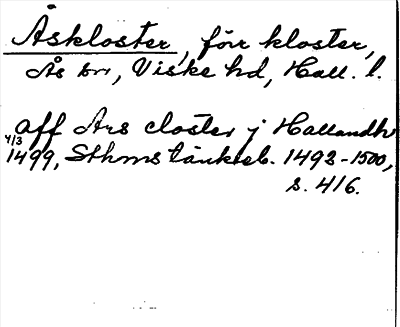 Åskloster, förr kloster,
Ås sn, Viske hd, Hall. l.
aff Ars closter j Hallandh
4/3 1499, Sthms tänkeb. 1492-1500,
s. 416.